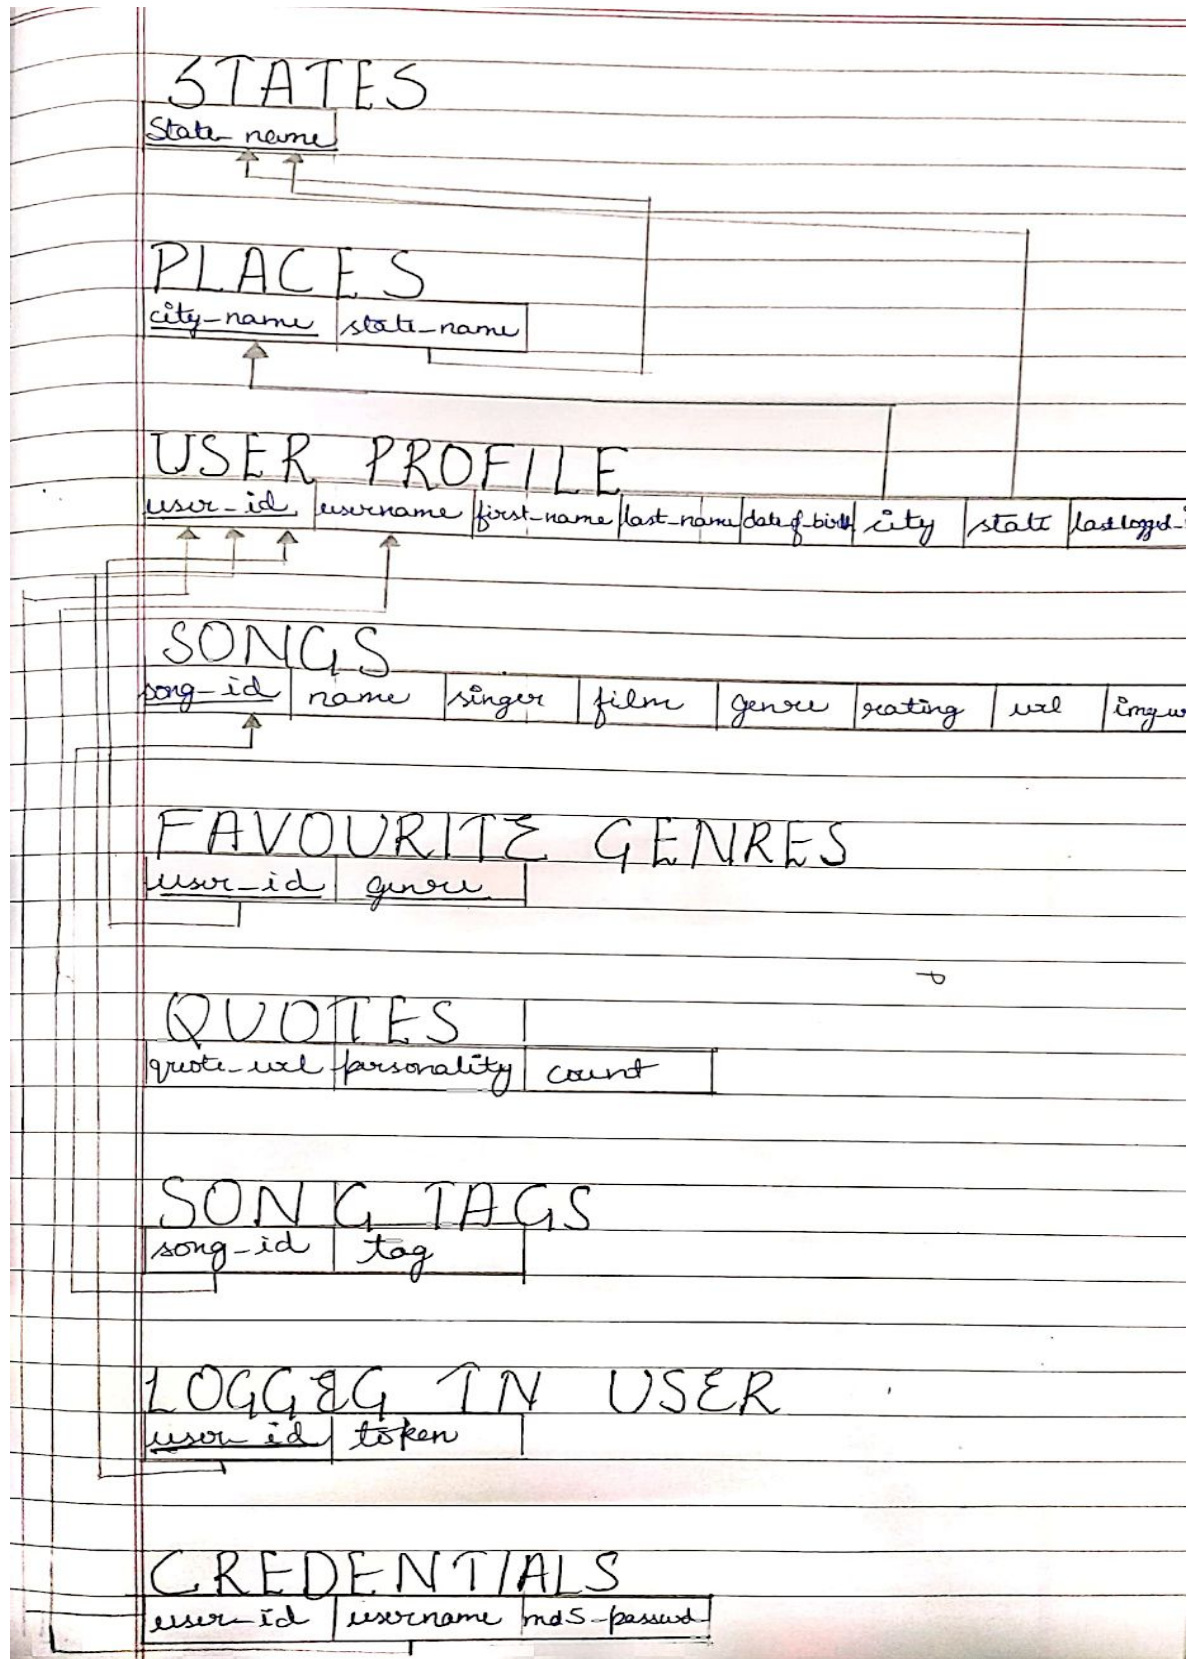 STATES
State_name
PLACES
city-name state-name
USER PROFILE
user-id username first-name last-name date of-birth city state last logged-
SONGS
song-id name singer film genre rating url
FAVOURITE GENRES
user-id genre
QUOTES
quote-url personality count
SONG TAGS
song-id tag
LOGGEG IN USER
user-id token
CREDENTIALS
user-id username md5-passwd